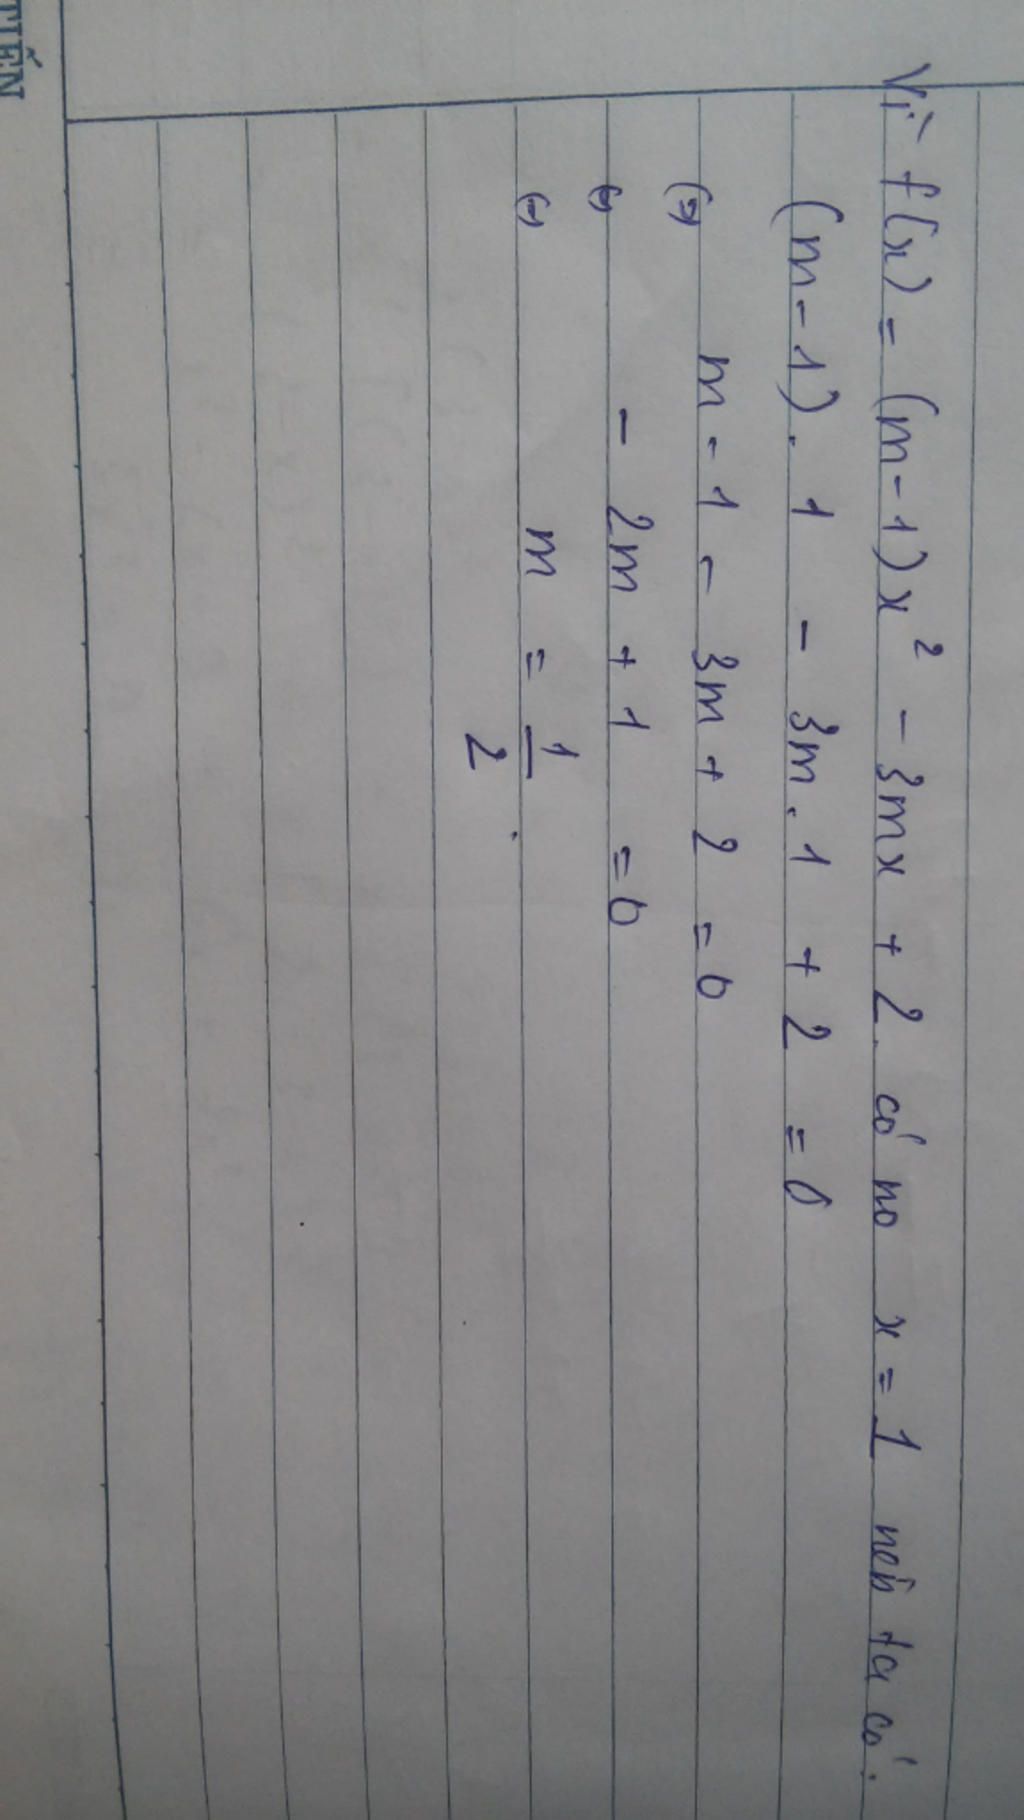 Vì f(x) = (m-1)x² - 3mx + 2 có no x = 1 nên ta có:
(m-1). 1 - 3m. 1 + 2 = 0
(=) m - 1 - 3m + 2 = 0
(=) - 2m + 1 = 0
(=) m = 1/2.
TIẾN